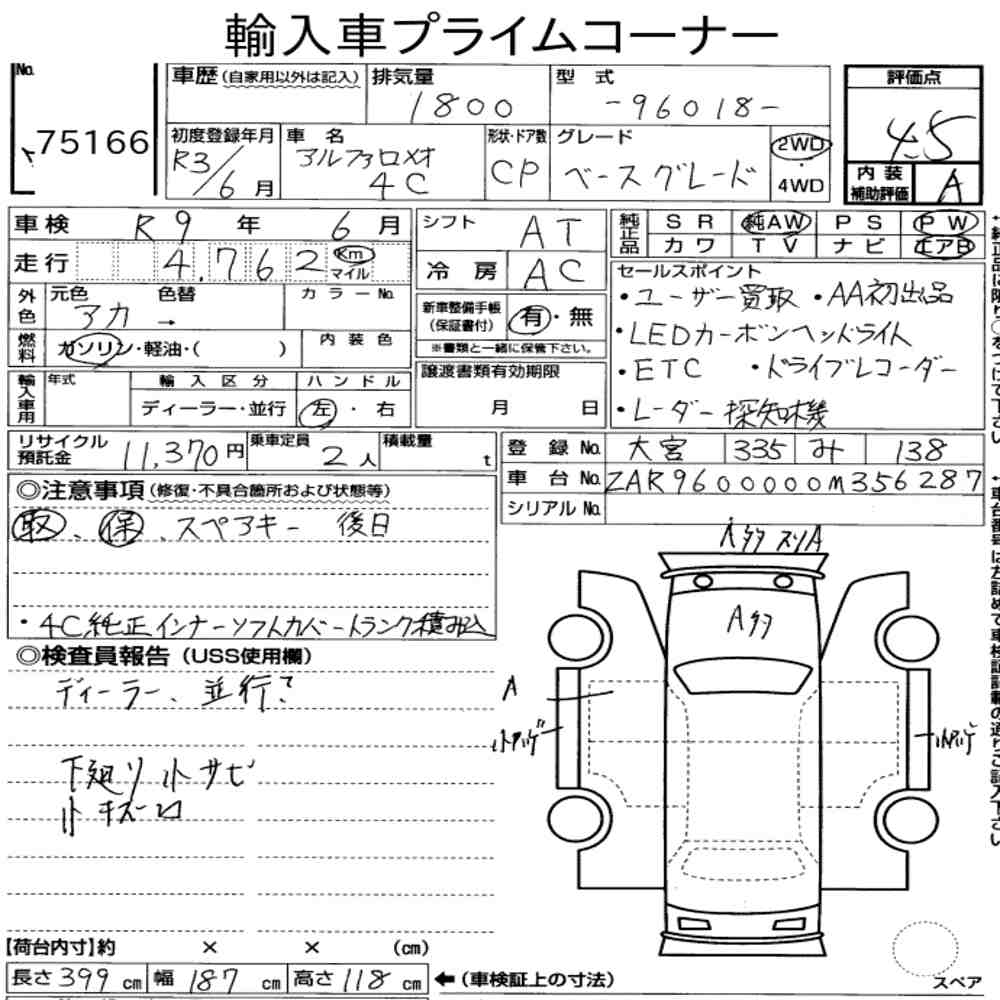 輸入車プライムコーナー
No. 75166
車歴(自家用以外は記入) 排気量 1800 型式 -96018- 評価点 4.5
初度登録年月 R3/6月 車名 アルファロメオ 4C 形状・ドア数 CP グレード ベースグレード 2WD・4WD 内装補助評価 A
車検 R9年 6月 シフト AT 純正品 SR 純AW PS PW
走行 4.762 Km マイル 冷房 AC カワ TV ナビ エアB
外色 元色 アカ 色替 → カラーNo. 新車整備手帳(保証書付) 有・無
※書類と一緒に保管下さい。
燃料 ガソリン・軽油・( ) 内装色
セールスポイント
・ユーザー買取 ・AA初出品
・LEDカーボンヘッドライト
・ETC ・ドライブレコーダー
・レーダー探知機
輸入車用 年式 輸入区分 ディーラー・並行 ハンドル 左・右 譲渡書類有効期限 月 日
リサイクル預託金 11,370円 乗車定員 2人 積載量 t
登録No. 大宮 335 み 138
車台No. ZAR9600000M356287
シリアルNo.
◎注意事項(修復・不具合箇所および状態等)
取、保、スペアキー 後日
・4C純正インナーソフトカバートランク積み込
◎検査員報告(USS使用欄)
ディーラー、並行?
下廻り 小サビ
小キズ
A多 スリA
A多
A
【荷台内寸】約 × × (cm)
長さ399cm 幅187cm 高さ118cm ←(車検証上の寸法)
スペア